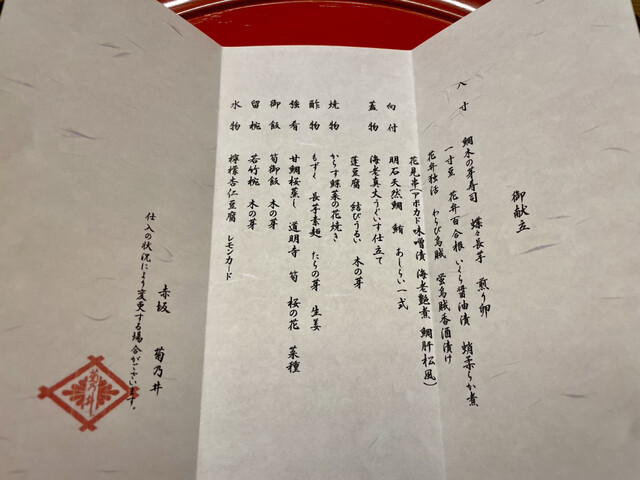 御献立
八寸　鯛木の芽寿司　蝶々長芋　煎り卵
一寸豆　花弁百合根　いくら醤油漬　蛸柔らか煮
花弁独活　わらび烏賊　蛍烏賊香酒漬け
花見串（アボカド味噌漬　海老艶煮　鯛肝松風）
向付　明石天然鯛　鮪　あしらい一式
蓋物　海老真丈うぐいす仕立て
蓬豆腐　結びうるい　木の芽
焼物　からす鰈菜の花焼き
酢物　もずく　長芋素麺　たらの芽　生姜
強肴　甘鯛桜蒸し　道明寺　筍　桜の花　菜種
御飯　筍御飯　木の芽
留椀　若竹椀　木の芽
水物　檸檬杏仁豆腐　レモンカード
赤坂　菊乃井
仕入の状況により変更する場合がございます。
菊乃井